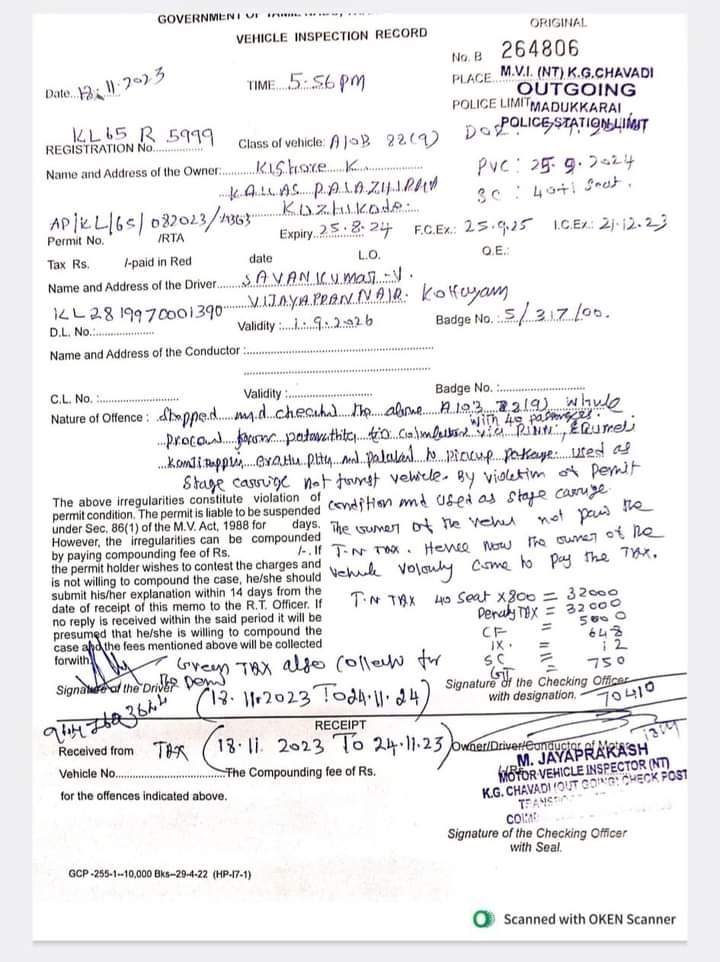 GOVERNMENT OF TAMIL
VEHICLE INSPECTION RECORD
ORIGINAL
No. B 264806
Date 11.2023
TIME 5:56 PM
PLACE M.V.I. (NT) K.G.CHAVADI
OUTGOING
POLICE LIMIT MADUKKARAI
POLICE STATION LIMIT
KL 65 R 5999
REGISTRATION No.
Class of vehicle:
PVC : 25.9.2024
Name and Address of the Owner: Kishore K
SC : 40+1 Seat.
Kozhikode.
AP/KL/65/082023/
Permit No. /RTA
Expiry 25.8.24 F.C.Ex.: 25.9.25 I.C.Ex: 21.12.23
Tax Rs. /-paid in Red date L.O. O.E.:
Name and Address of the Driver SAVAN Kumar - V.
VIJAYAPPAN NAIR. Kottayam
KL 28 19970001390
D.L. No.: Validity : 1.9.2026 Badge No. : 5/317/00.
Name and Address of the Conductor :
C.L. No. : Validity : Badge No. :
Nature of Offence : Stopped and checked the above while
with 40
via Erumeli
and to pickup used as
Stage carriage not tourist vehicle. By violation of Permit
condition and used as stage carriage.
The owner of the not paid the
T.N Tax. Hence Now the owner of the
vehicle come to pay the Tax.
The above irregularities constitute violation of
permit condition. The permit is liable to be suspended
under Sec. 86(1) of the M.V. Act, 1988 for days.
However, the irregularities can be compounded
by paying compounding fee of Rs. /-. If
the permit holder wishes to contest the charges and
is not willing to compound the case, he/she should
submit his/her explanation within 14 days from the
date of receipt of this memo to the R.T. Officer. If
no reply is received within the said period it will be
presumed that he/she is willing to compound the
case and the fees mentioned above will be collected
forwith
T.N TAX 40 Seat x 800 = 32000
Penalty Tax = 32000
CF = 5000
IX. = 648
SC = 12
GT = 750
70410
Green TAX also collect for
Signature of the Driver
Signature of the Checking Officer
with designation.
(18.11.2023 To 24.11.24)
RECEIPT
Received from TAX (18.11.2023 To 24.11.23) Owner/Driver/Conductor of Motor
M. JAYAPRAKASH
MOTOR VEHICLE INSPECTOR (NT)
K.G. CHAVADI (OUT GOING) CHECK POST
Vehicle No. The Compounding fee of Rs.
for the offences indicated above.
Signature of the Checking Officer
with Seal.
GCP -255-1--10,000 Bks--29-4-22 (HP-I7-1)
Scanned with OKEN Scanner